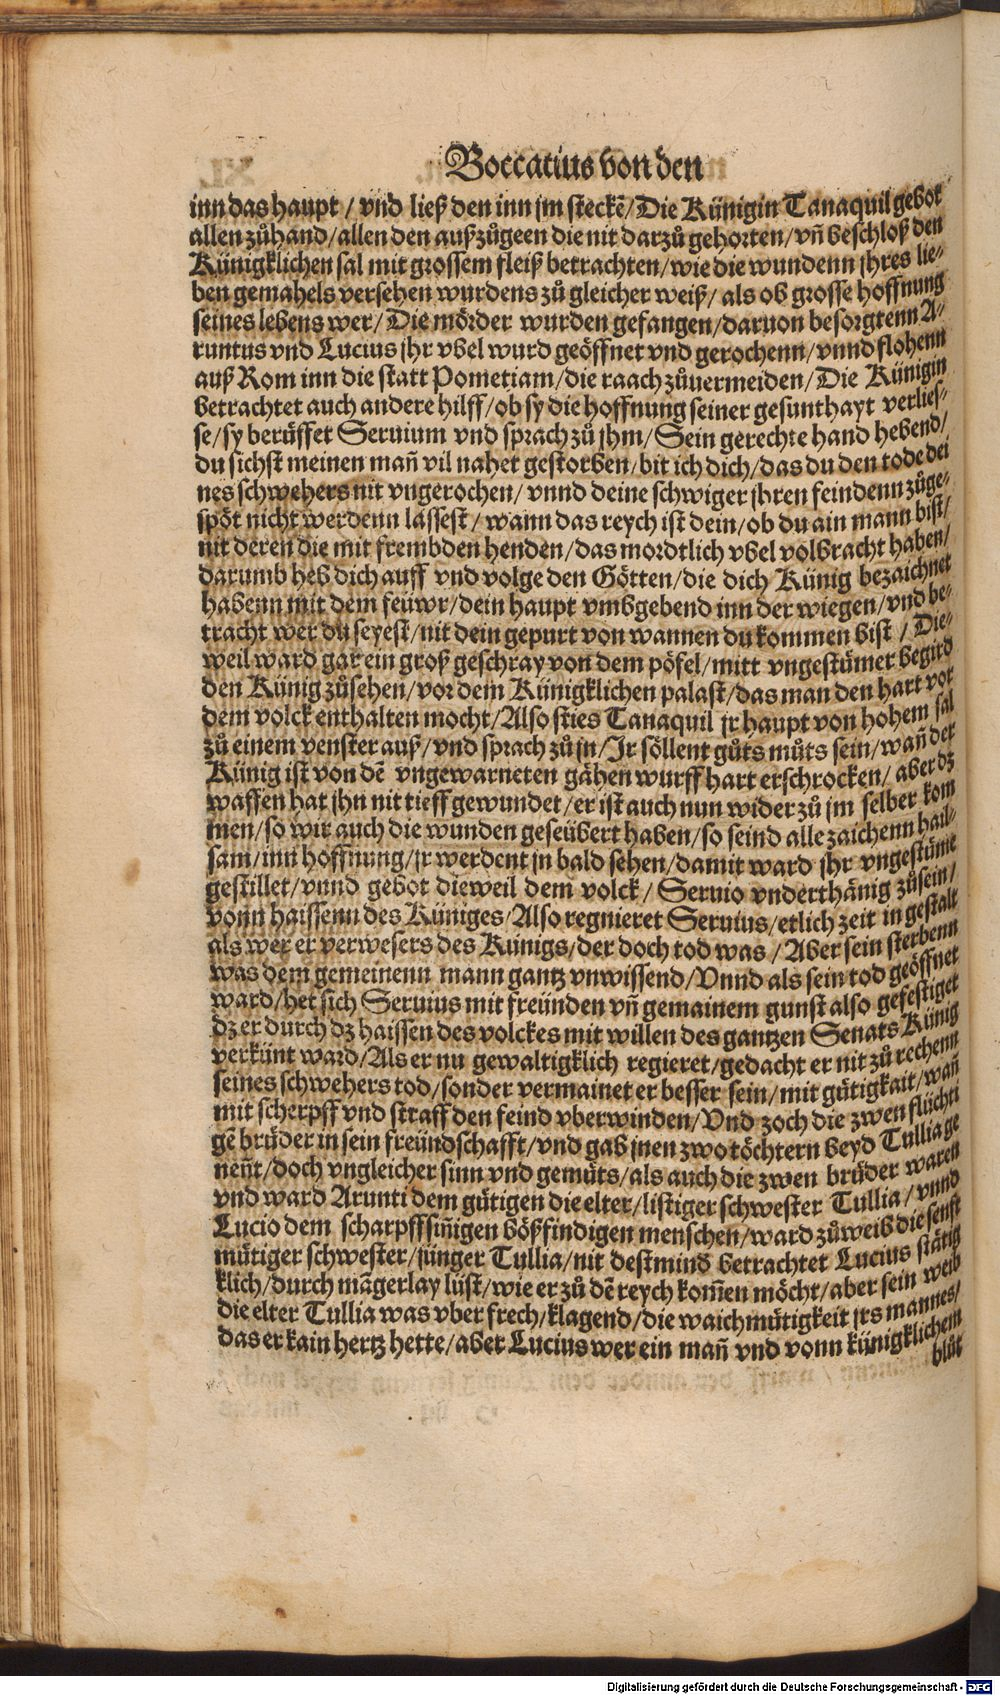 Boccatius von den
inn das haupt / vnd ließ den inn jm steckẽ / Die Künigin Tanaquil gebot
allen zůhand / allen den außzůgeen die nit darzů gehorten / vñ beschloß den
Künigklichen sal mit grossem fleiß betrachten / wie die wundenn jhres lie-
ben gemahels versehen wurdens zů gleicher weiß / als ob grosse hoffnung
seines lebens wer / Die mörder wurden gefangen / daruon besorgtenn A-
runtus vnd Lucius jhr vbel wurd geöffnet vnd gerochenn / vnnd flohenn
auß Rom inn die statt Pometiam / die raach zůuermeiden / Die Künigin
betrachtet auch andere hilff / ob sy die hoffnung seiner gesunthayt verlies-
se / sy berüffet Seruium vnd sprach zů jhm / Sein gerechte hand hebend /
du sichst meinen mañ vil nahet gestorben / bit ich dich / das du den tode dei
nes schwehers nit vngerochen / vnnd deine schwiger jhren feindenn zůge-
spöt nicht werdenn lassest / wann das reych ist dein / ob du ain mann bist /
nit deren die mit frembden henden / das mordtlich vbel volbracht haben /
darumb heb dich auff vnd volge den Götten / die dich Künig bezaichnet
habenn mit dem feüwr / dein haupt vmbgebend inn der wiegen / vnd be-
tracht wer du seyest / nit dein gepurt von wannen du kommen bist / Die-
weil ward gar ein groß geschray von dem pöfel / mitt vngestümer begird
den Künig zůsehen / vor dem Künigklichen palast / das man den hart vor
dem volck enthalten mocht / Also sties Tanaquil jr haupt von hohem sal
zů einem venster auß / vnd sprach zů jn / Jr söllent gůts můts sein / wañ der
Künig ist von dẽ vngewarneten gähen wurff hart erschrocken / aber dz
waffen hat jhn nit tieff gewundet / er ist auch nun wider zů jm selber kom
men / so wir auch die wunden geseübert haben / so seind alle zaichenn hail-
sam / inn hoffnung / jr werdent jn bald sehen / damit ward jhr vngestüme
gestillet / vnnd gebot dieweil dem volck / Seruio vnderthänig zůsein /
vonn haissenn des Küniges / Also regnieret Seruius / etlich zeit in gestalt
als wer er verwesers des Künigs / der doch tod was / Aber sein sterbenn
was dem gemeinenn mann gantz vnwissend / Vnnd als sein tod geöffnet
ward / het sich Seruius mit freünden vñ gemainem gunst also gefestiget
dz er durch dz haissen des volckes mit willen des gantzen Senats Künig
verkünt ward / Als er nu gewaltigklich regieret / gedacht er nit zů rechenn
seines schwehers tod / sonder vermainet er besser sein / mit gütigkait / wañ
mit scherpff vnd straff den feind vberwinden / Vnd zoch die zwen flüchti
gẽ brüder in sein freündschafft / vnd gab jnen zwo töchtern beyd Tullia ge
neñt / doch vngleicher sinn vnd gemüts / als auch die zwen brüder waren
vnd ward Arunti dem gütigen die elter / listiger schwester Tullia / vnnd
Lucio dem scharpffsiñigen bößfindigen menschen / ward zůweib die senft
mütiger schwester / jünger Tullia / nit destmind betrachtet Lucius stätig
klich / durch mãgerlay lüst / wie er zů dẽ reych kom̃en möcht / aber sein weib
die elter Tullia was vber frech / klagend / die waichmütigkeit jrs mannes /
das er kain hertz hette / aber Lucius wer ein mañ vnd vonn künigklichem
blüt
Digitalisierung gefördert durch die Deutsche Forschungsgemeinschaft - DFG